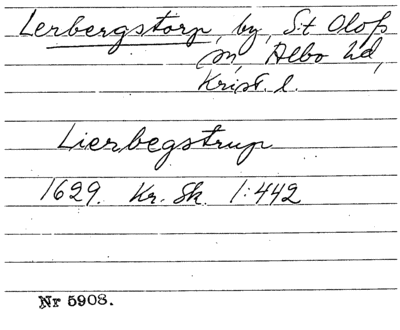 Lerbergstorp, by, S:t Olofs
sn, Albo hd,
Krist. l.
Lierbegstrup
1629. Kr. Sk. 1:442
Nr 5908.